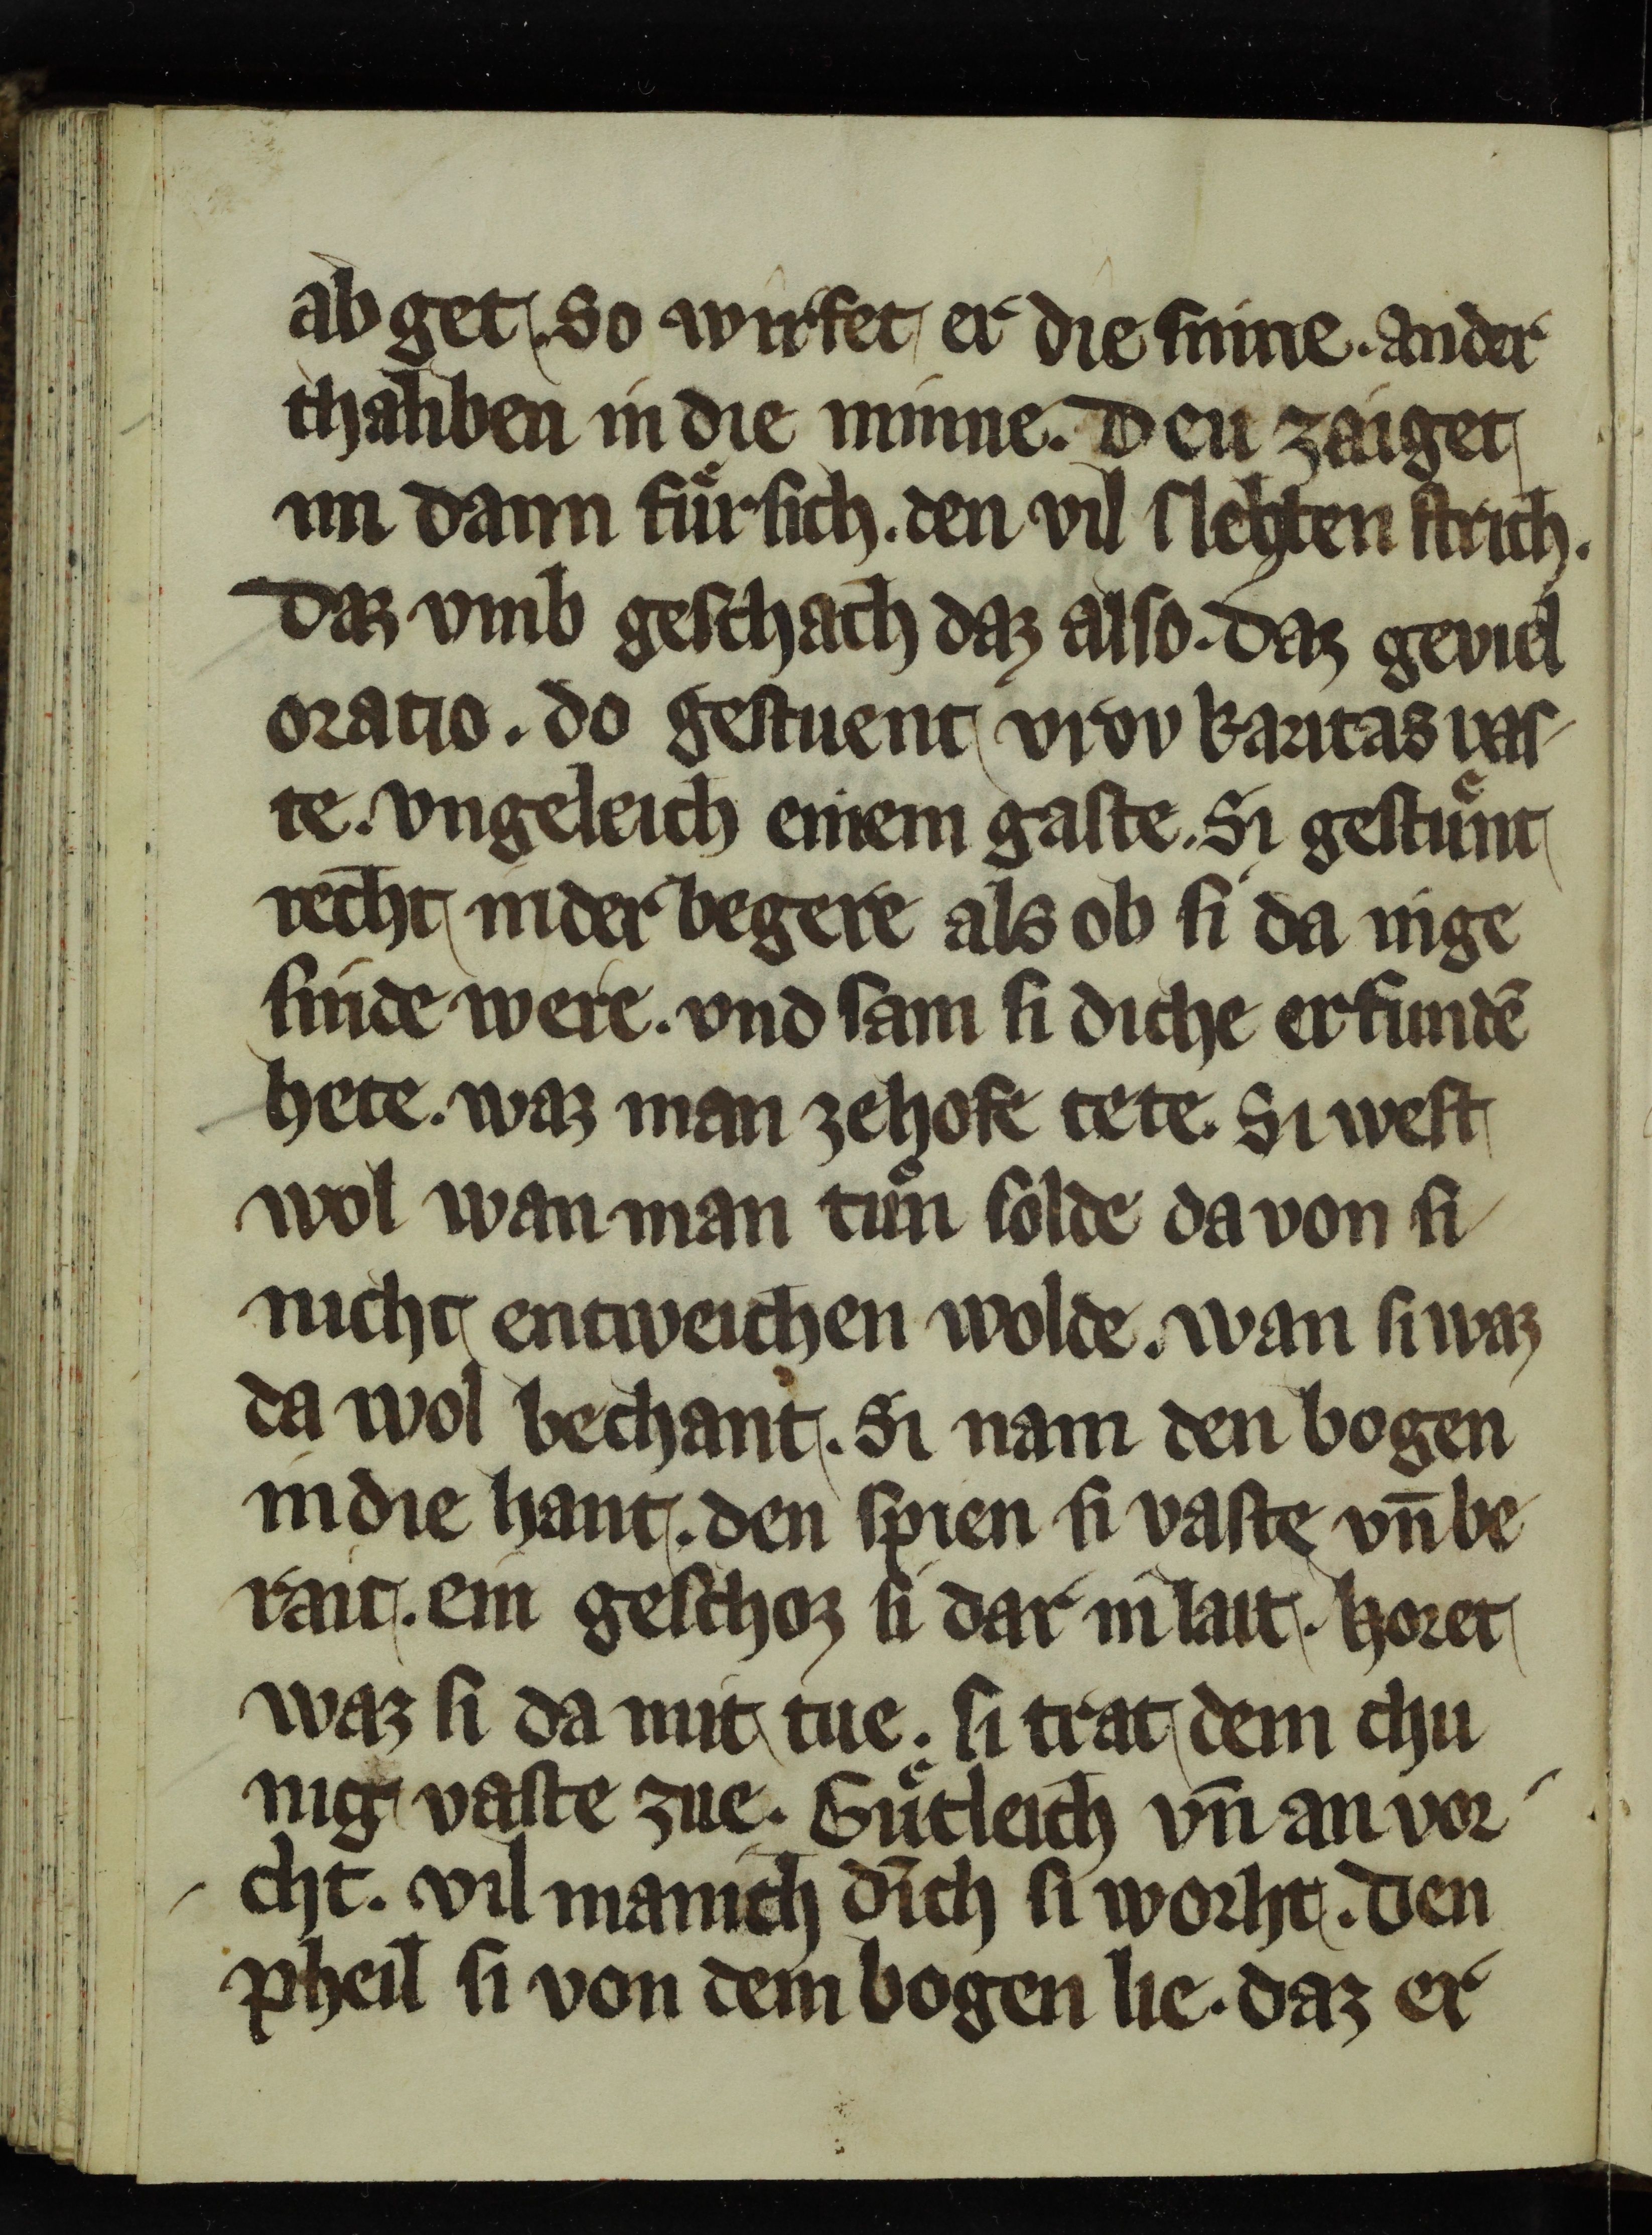 ab get. So wirfet er die sinne. ander
thalben in die minne. Deu zaiget
im dann fuͤr sich. den vil slehten strich.
Daz vmb geschach daz also. daz geviel
oratio. do gestuent vrow karitas vas
te. vngeleich einem gaste. Si gestuͤnt
recht in der begere als ob si da inge
sinde were. vnd sam si diche erfundē
hete. waz man ze hofe tete. Si west
wol wan man tuͦn solde da von si
nicht entweichen wolde. wan si waz
da wol bechant. Si nam den bogen
in die hant. den spien si vaste vn̄ be
rait. ein geschoz si dar in lait. horet
waz si da mit tue. si trat dem chu
nig vaste zue. Guͤtleich vn̄ an vor
cht. vil manich dīch si worht. Den
pheil si von dem bogen lie. daz er